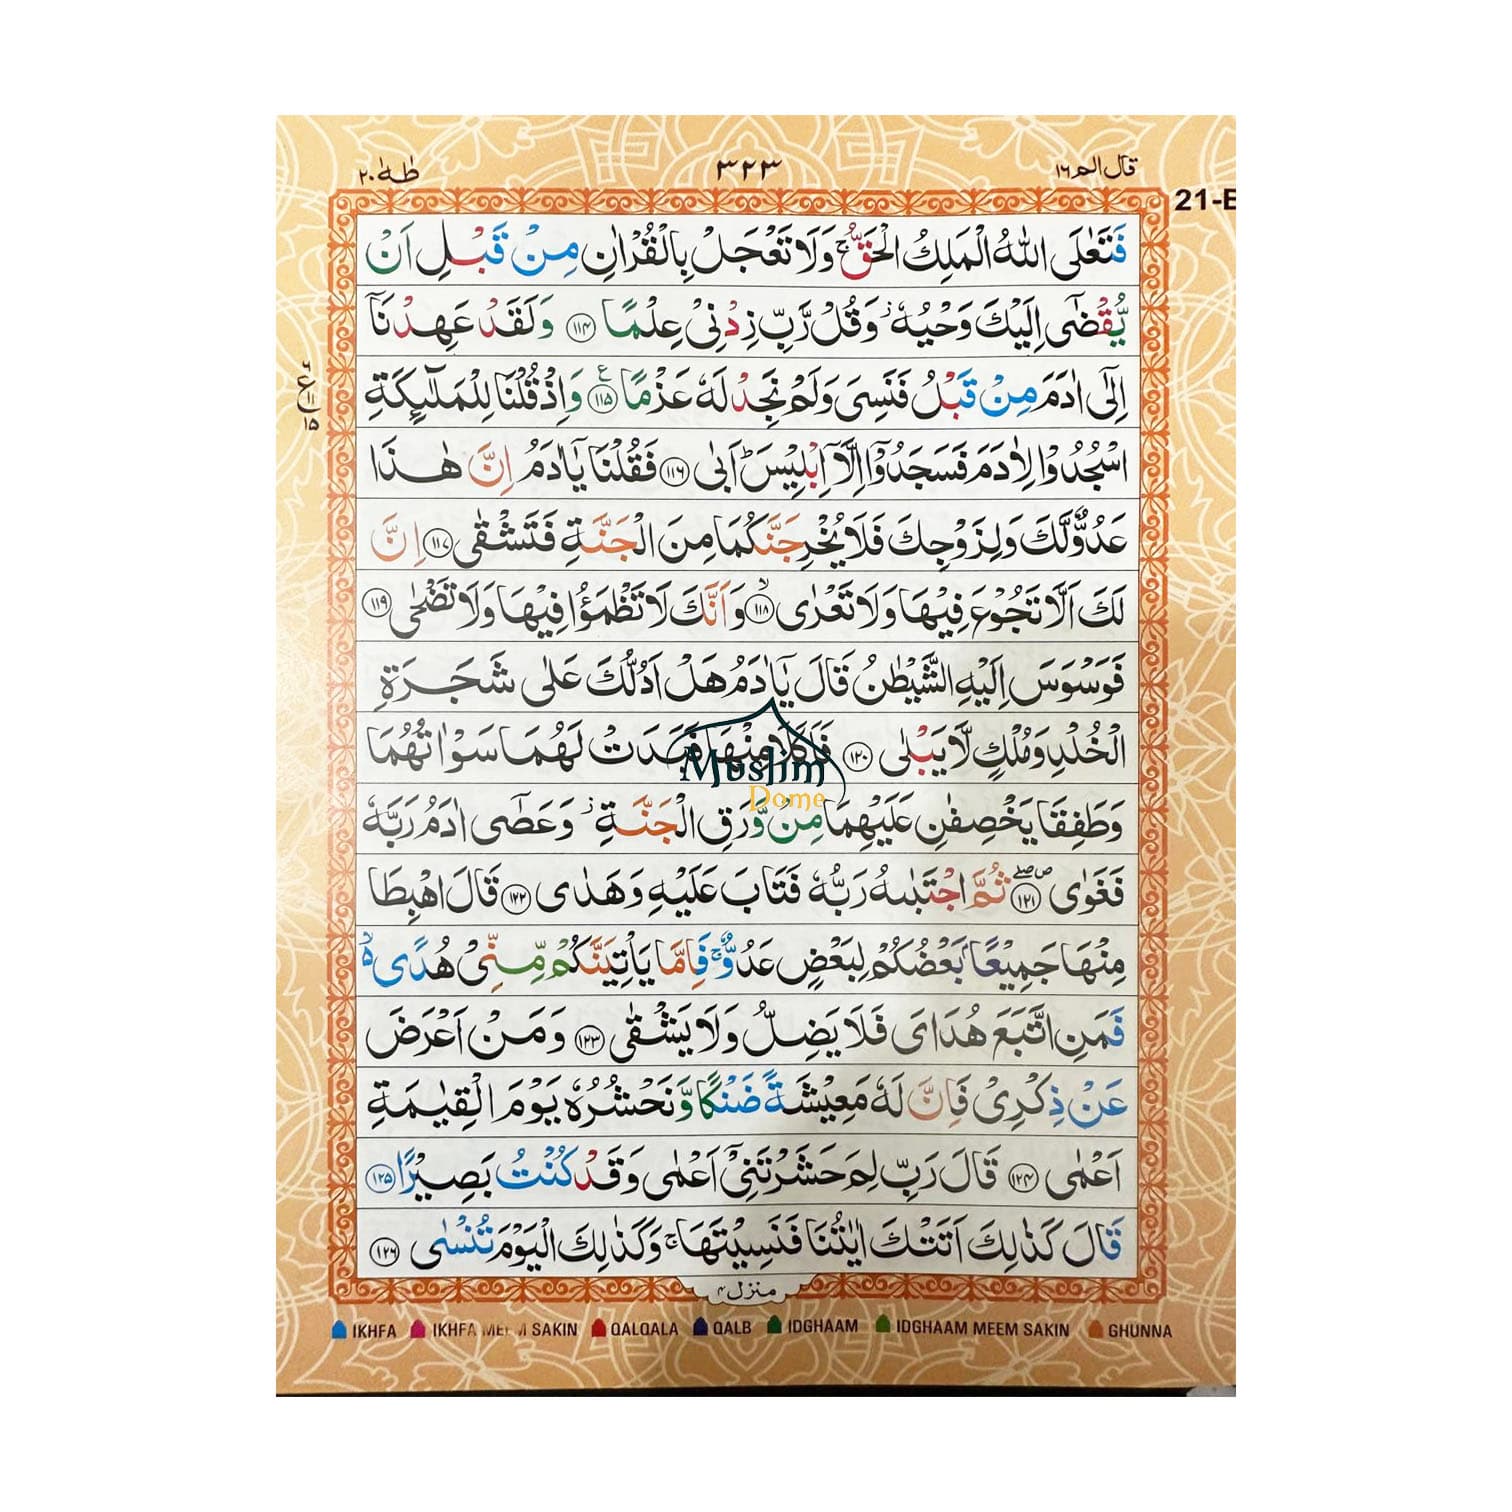 قال الم ١٦
٣٢٣
طٰهٰ ٢٠
21-E
فَتَعٰلَى اللّٰهُ الْمَلِكُ الْحَقُّ ۚ وَلَا تَعْجَلْ بِالْقُرْاٰنِ مِنْ قَبْلِ اَنْ
يُّقْضٰٓى اِلَيْكَ وَحْيُهٗ ۡ وَقُلْ رَّبِّ زِدْنِيْ عِلْمًا ۝۱۱۴ وَلَقَدْ عَهِدْنَآ
اِلٰٓى اٰدَمَ مِنْ قَبْلُ فَنَسِيَ وَلَمْ نَجِدْ لَهٗ عَزْمًا ۝۱۱۵ ع وَاِذْ قُلْنَا لِلْمَلٰٓىِٕكَةِ
ع
۱۱
۱۵
اسْجُدُوْا لِاٰدَمَ فَسَجَدُوْٓا اِلَّآ اِبْلِيْسَ ؕ اَبٰى ۝۱۱۶ فَقُلْنَا يٰٓاٰدَمُ اِنَّ هٰذَا
عَدُوٌّ لَّكَ وَلِزَوْجِكَ فَلَا يُخْرِجَنَّكُمَا مِنَ الْجَنَّةِ فَتَشْقٰى ۝۱۱۷ اِنَّ
لَكَ اَلَّا تَجُوْعَ فِيْهَا وَلَا تَعْرٰى ۙ۝۱۱۸ وَاَنَّكَ لَا تَظْمَؤُا فِيْهَا وَلَا تَضْحٰى ۝۱۱۹
فَوَسْوَسَ اِلَيْهِ الشَّيْطٰنُ قَالَ يٰٓاٰدَمُ هَلْ اَدُلُّكَ عَلٰى شَجَرَةِ
الْخُلْدِ وَمُلْكٍ لَّا يَبْلٰى ۝۱۲۰ فَاَكَلَا مِنْهَا فَبَدَتْ لَهُمَا سَوْاٰتُهُمَا
Muslim
Dome
وَطَفِقَا يَخْصِفٰنِ عَلَيْهِمَا مِنْ وَّرَقِ الْجَنَّةِ ۡ وَعَصٰٓى اٰدَمُ رَبَّهٗ
فَغَوٰى ۝۱۲۱ ص صلے ثُمَّ اجْتَبٰىهُ رَبُّهٗ فَتَابَ عَلَيْهِ وَهَدٰى ۝۱۲۲ قَالَ اهْبِطَا
مِنْهَا جَمِيْعًاۢ بَعْضُكُمْ لِبَعْضٍ عَدُوٌّ ۚ فَاِمَّا يَاْتِيَنَّكُمْ مِّنِّيْ هُدًى ۙ۵
فَمَنِ اتَّبَعَ هُدَايَ فَلَا يَضِلُّ وَلَا يَشْقٰى ۝۱۲۳ وَمَنْ اَعْرَضَ
عَنْ ذِكْرِيْ فَاِنَّ لَهٗ مَعِيْشَةً ضَنْكًا وَّنَحْشُرُهٗ يَوْمَ الْقِيٰمَةِ
اَعْمٰى ۝۱۲۴ قَالَ رَبِّ لِمَ حَشَرْتَنِيْٓ اَعْمٰى وَقَدْ كُنْتُ بَصِيْرًا ۝۱۲۵
قَالَ كَذٰلِكَ اَتَتْكَ اٰيٰتُنَا فَنَسِيْتَهَا ۚ وَكَذٰلِكَ الْيَوْمَ تُنْسٰى ۝۱۲۶
منزل ۴
IKHFA IKHFA MEEM SAKIN QALQALA QALB IDGHAAM IDGHAAM MEEM SAKIN GHUNNA